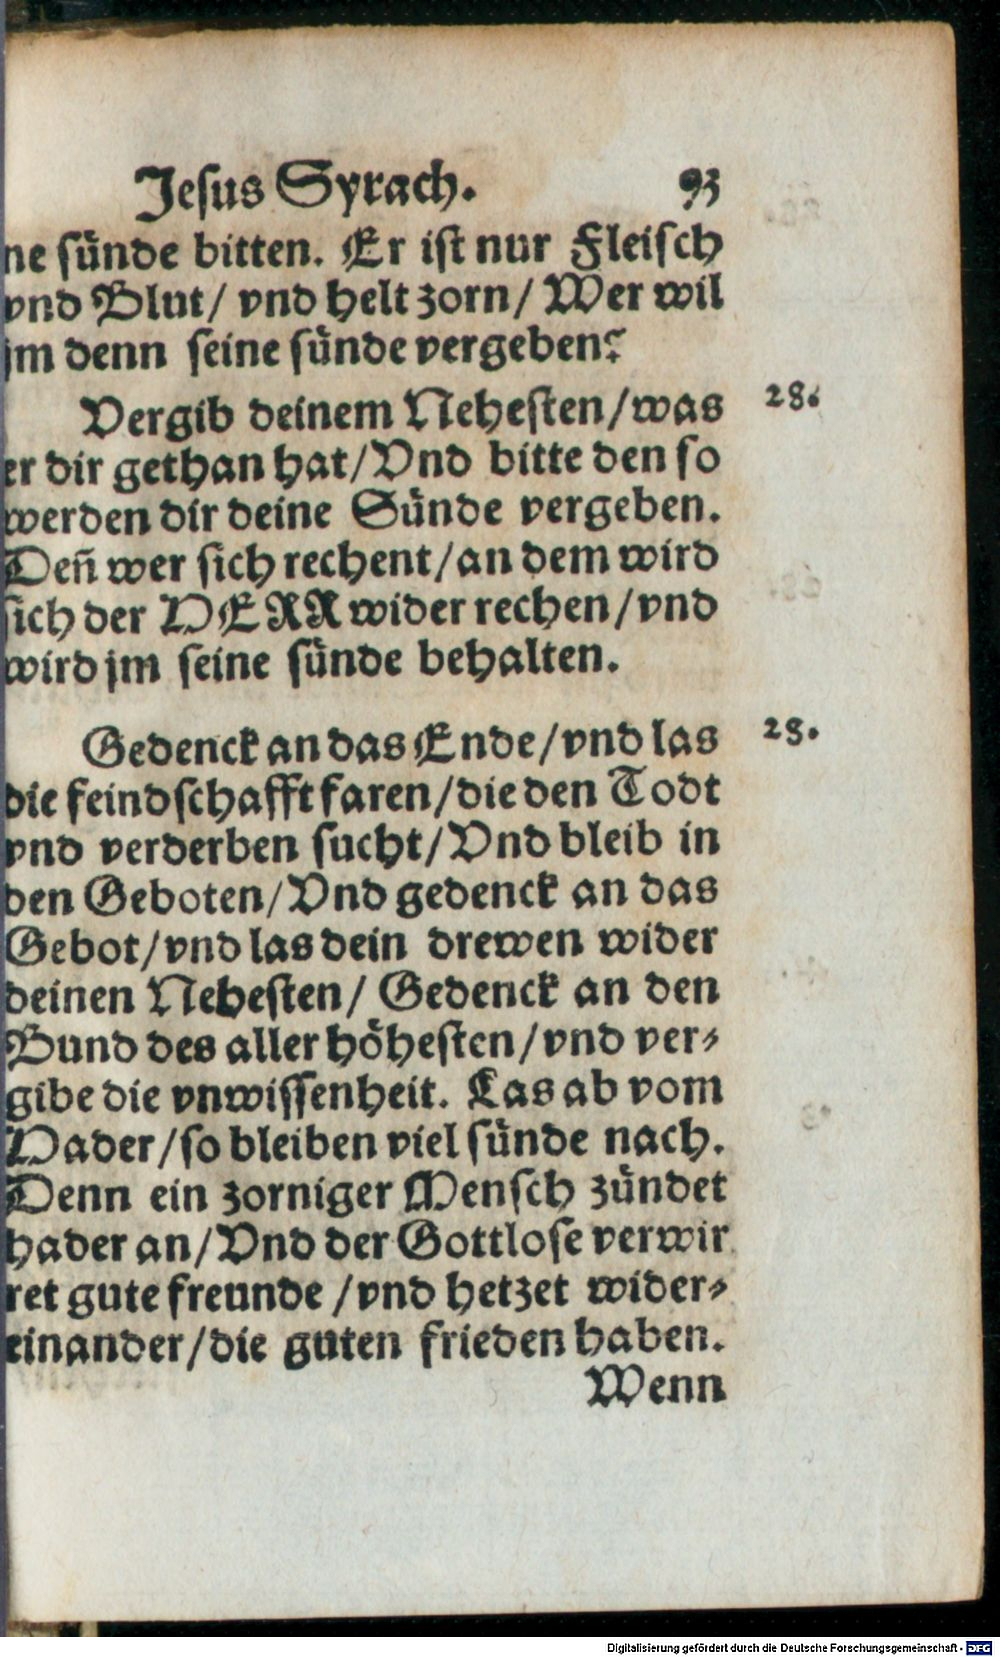 Jesus Syrach. 93
ne sünde bitten. Er ist nur Fleisch
vnd Blut/ vnd helt zorn/ Wer wil
jm denn seine sünde vergeben?
Vergib deinem Nehesten/was 28.
er dir gethan hat/Vnd bitte den so
werden dir deine Sünde vergeben.
Deñ wer sich rechent/an dem wird
sich der HERR wider rechen/vnd
wird jm seine sünde behalten.
Gedenck an das Ende/vnd las 28.
die feindschafft faren/die den Todt
vnd verderben sucht/Vnd bleib in
den Geboten/Vnd gedenck an das
Gebot/vnd las dein drewen wider
deinen Nehesten/ Gedenck an den
Bund des aller höhesten/vnd ver⸗
gibe die vnwissenheit. Las ab vom
Hader/so bleiben viel sünde nach.
Denn ein zorniger Mensch zündet
hader an/Vnd der Gottlose verwir
ret gute freunde /vnd hetzet wider⸗
einander/die guten frieden haben.
Wenn
Digitalisierung gefördert durch die Deutsche Forschungsgemeinschaft - DFG